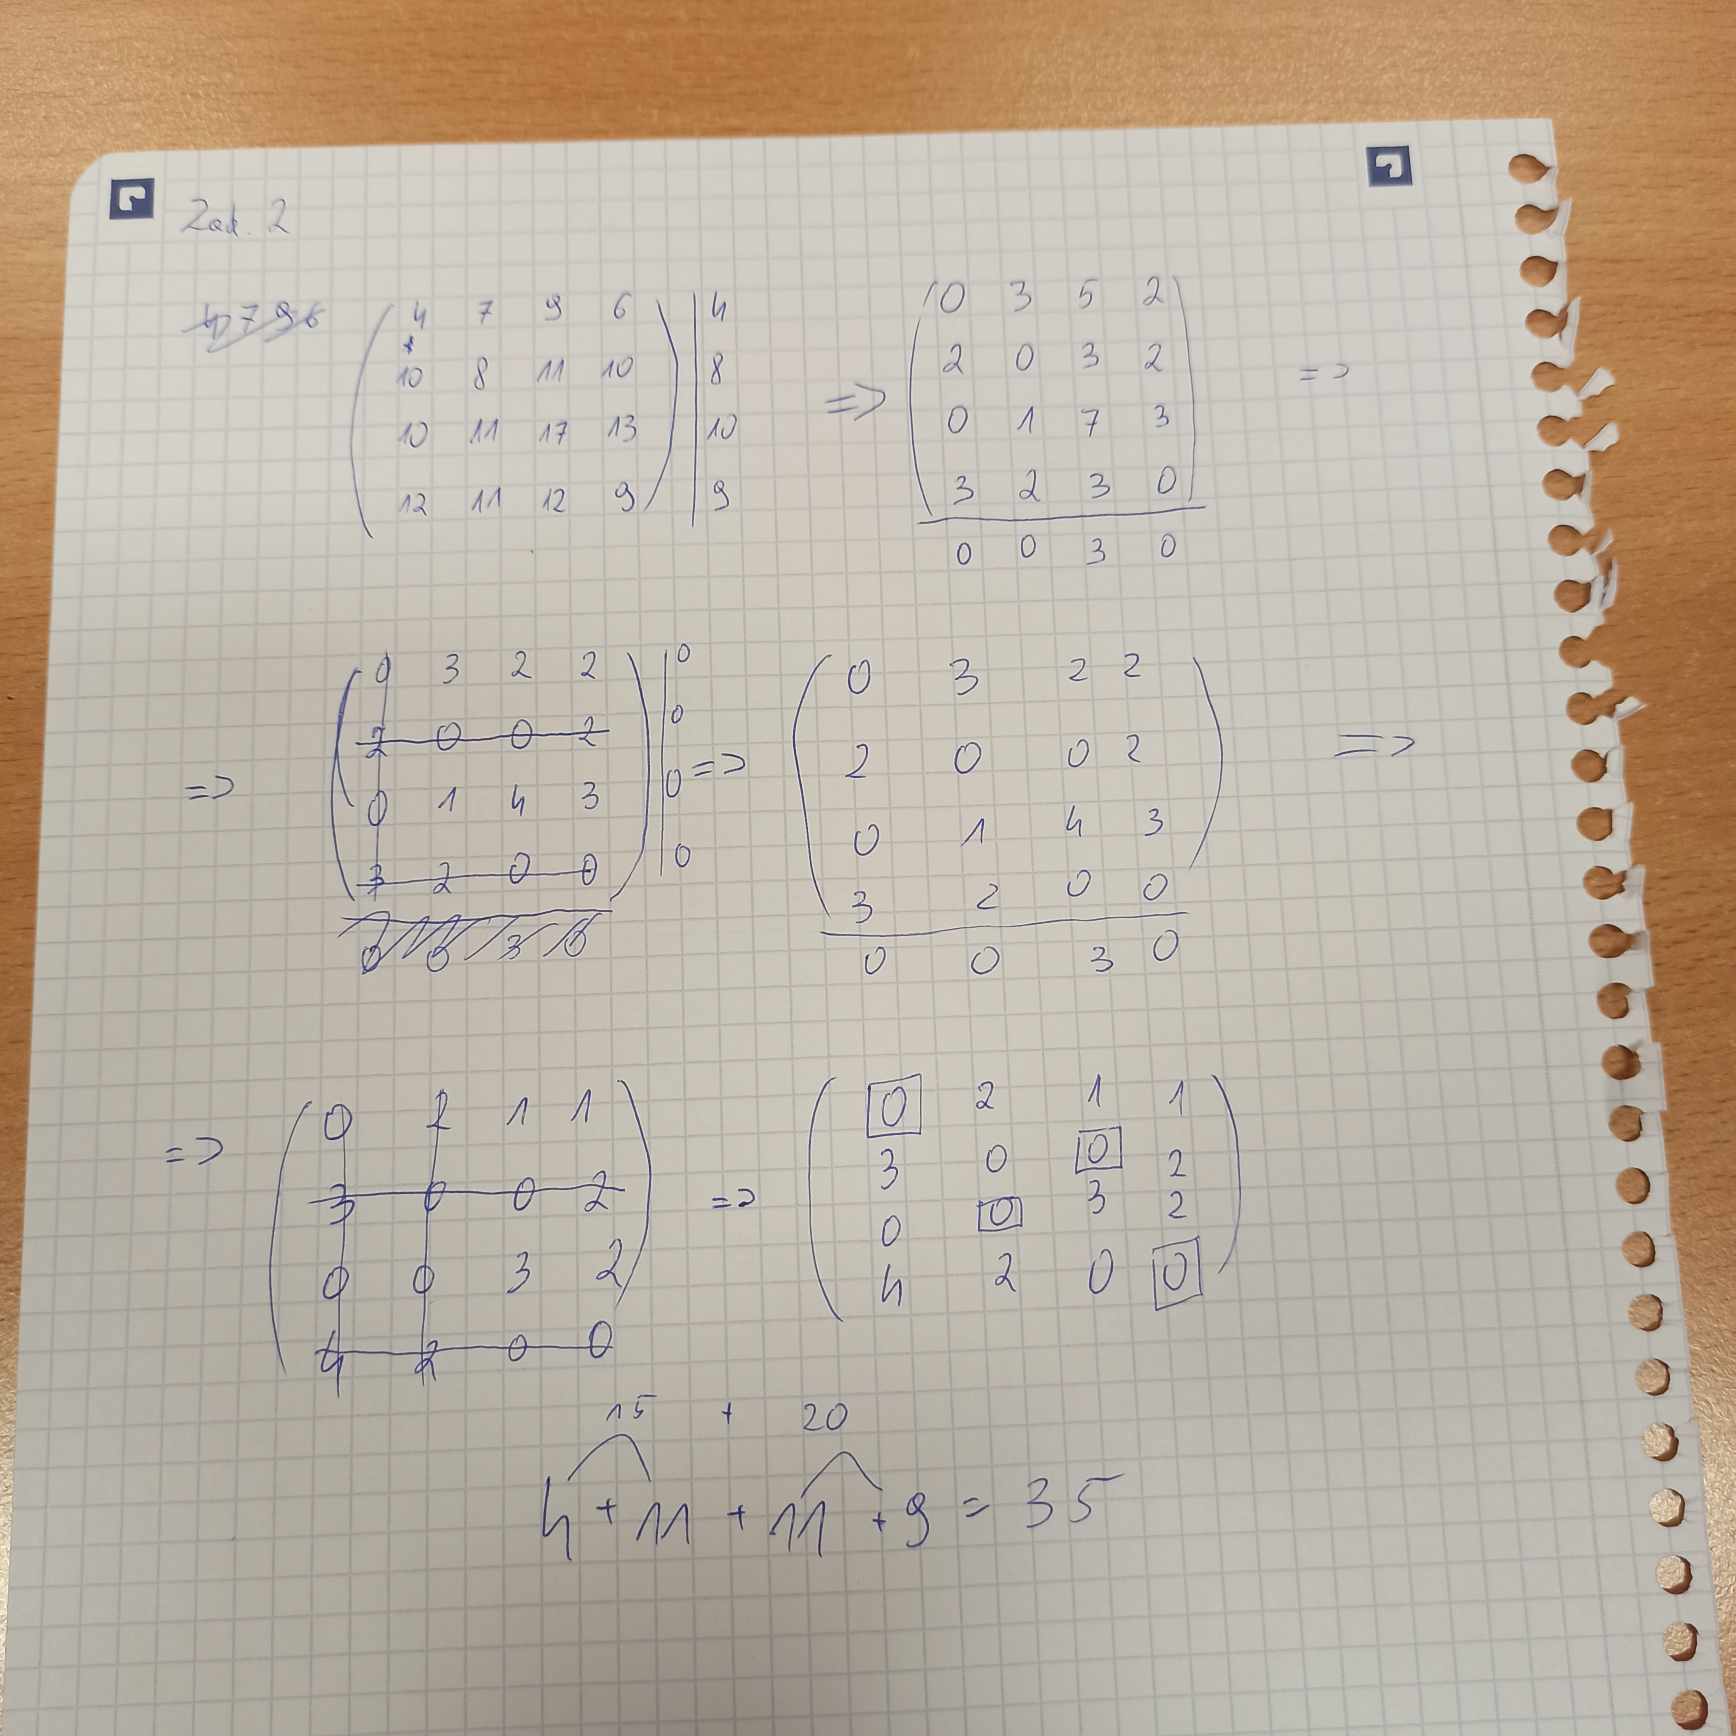 Zad. 2
4 7 9 6
( 4 7 9 6 ) | 4
10 8 11 10 | 8
10 11 17 13 | 10
12 11 12 9 | 9
=>
( 0 3 5 2 )
2 0 3 2
0 1 7 3
3 2 3 0
0 0 3 0
=>
=>
( 0 3 2 2 ) | 0
2 0 0 2 | 0
0 1 4 3 | 0
3 2 0 0 | 0
0 0 3 0
=>
( 0 3 2 2 )
2 0 0 2
0 1 4 3
3 2 0 0
0 0 3 0
=>
=>
( 0 2 1 1 )
3 0 0 2
0 0 3 2
4 2 0 0
=>
( 0 2 1 1 )
3 0 0 2
0 0 3 2
4 2 0 0
15 + 20
4 + 11 + 11 + 9 = 35